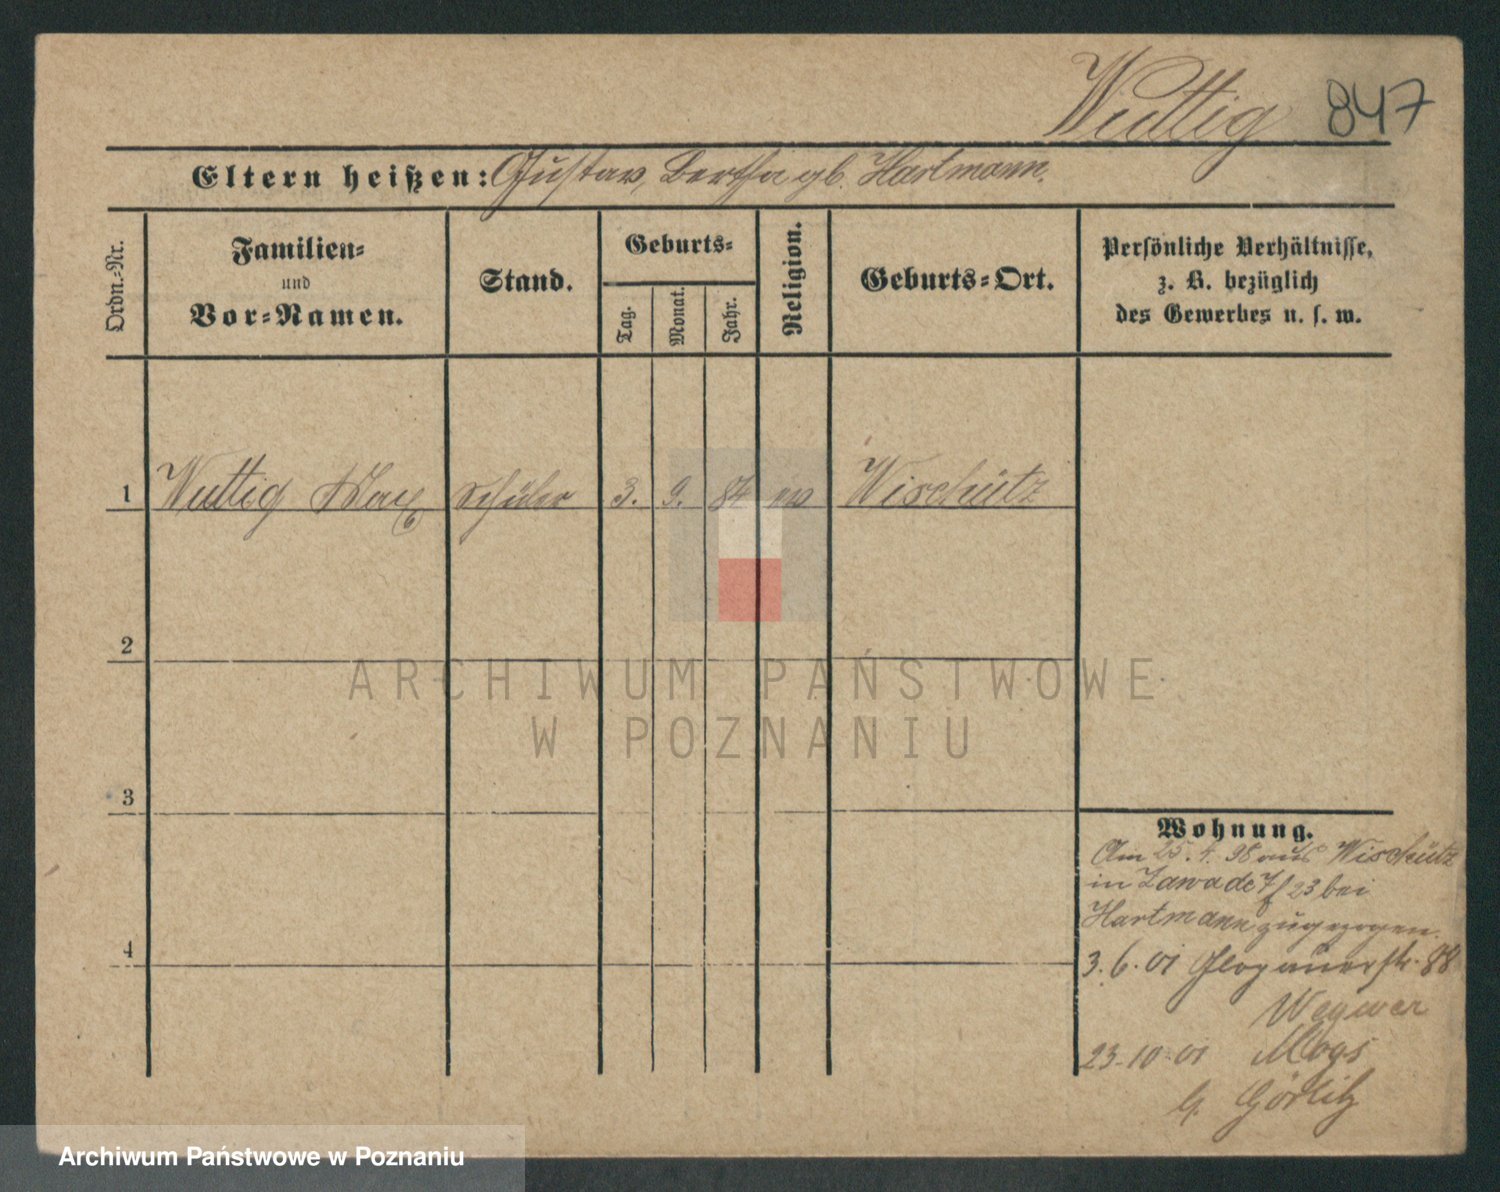 Wuttig 847
Eltern heißen: Gustav, Bertha gb. Hartmann.
Ordn.-Nr.
Familien-
und
Vor-Namen.
Stand.
Geburts-
Tag.
Monat.
Jahr.
Religion.
Geburts-Ort.
Persönliche Verhältnisse,
z. B. bezüglich
des Gewerbes u. s. w.
1 Wuttig Max Schüler 3. 9. 84 ev Wischütz
2
3
4
Wohnung.
Am 25.4.98 aus Wischütz
in Zawade 23 bei
Hartmann zugezogen.
3.6.01 Glogauerstr. 88
Wegner
23.10.01
Görlitz
ARCHIWUM PAŃSTWOWE
W POZNANIU
Archiwum Państwowe w Poznaniu